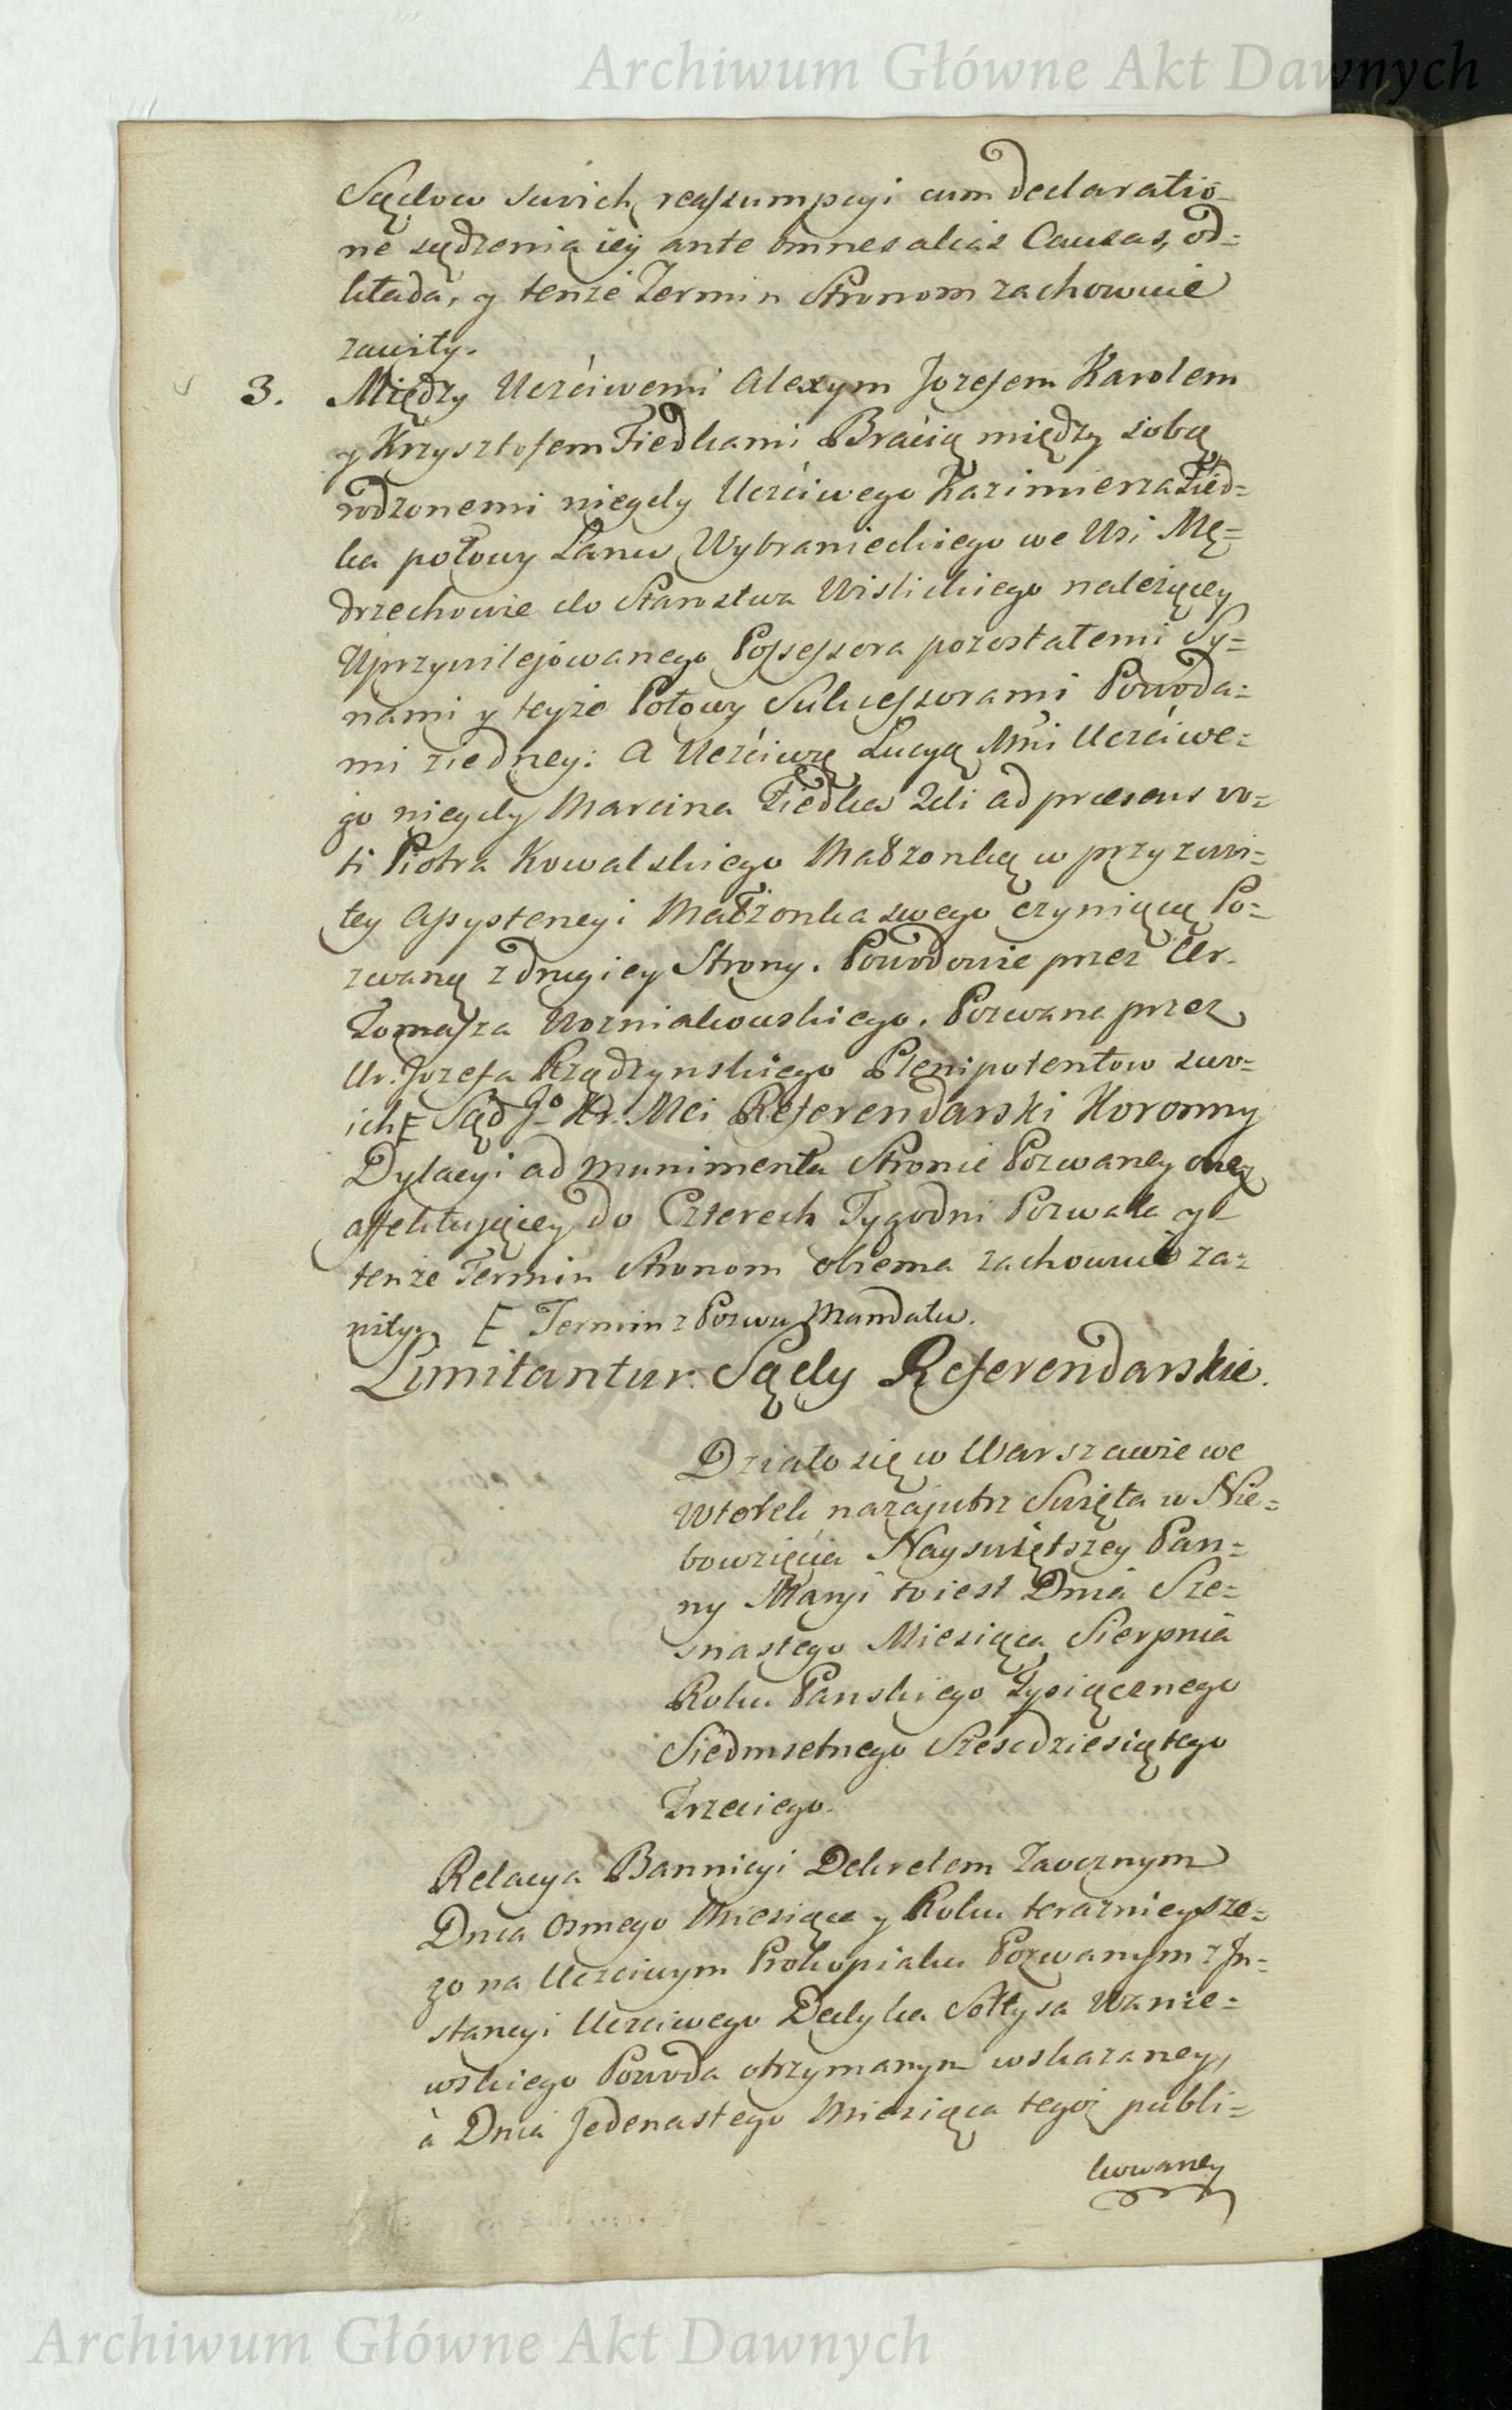 Archiwum Główne Akt Dawnych
Sądow swich reassumpcyi cum declaratio-
ne sądzenia iey ante omnes alias Causas, od=
kłada, y tenże Termin Stronom zachowuie
zawity.
3. Między Uczciwemi Alexym Jozefem Karolem
y Krzysztofem Fiedkami Bracią między sobą
rodzonemi niegdy Uczciwego Kazimierza Fied=
ka połowy Łanu Wybranieckiego we Wsi Mę=
drzechowie do Starostwa Wislickiego należącey
Uprzywilejowanego Possessora pozostałemi Sy=
nami y teyże Połowy Sukcessorami Powoda=
mi z iedney: A Uczciwą Lucyą Imi Uczciwe=
go niegdy Marcina Fiedka 2di ad præsens vo=
ti Piotra Kowalskiego Małżonką w przyzwi=
tey Assystencyi Małżonka swego czyniącą Po=
zwaną z drugiey Strony. Powodowie przez Ur.
Tomasza Wozniakowskiego. Pozwana przez
Ur. Jozefa Rządzynskiego Plenipotentow swo=
ich E Sąd Jo Kr. Mci Referendarski Koronny
Dylacyi ad munimenta Stronie Pozwaney onez
affektującey do Czterech Tygodni Pozwala y
tenże Termin Stronom obiema zachowuie za=
wity. E Termin z Pozwu Mandatu.
Limitantur Sądy Referendarskie.
Działo się w Warszawie we
Wtorek nazajutrz Swięta w Nie=
bowzięcia Nayswiętszey Pan=
ny Maryi to iest Dnia Sze=
snastego Miesiąca Sierpnia
Roku Panskiego Tysiącznego
Siedmsetnego Szescdziesiątego
Trzeciego.
Relacya Bannicyi Dekretem Zaocznym
Dnia Osmego Miesiąca y Roku teraznieysze=
go na Uczciwym Prokopiaku Pozwanym z In=
stancyi Uczciwego Dedyka Sołtysa Wanie=
wskiego Powoda otrzymanym wskazaney,
à Dnia Jedenastego Miesiąca tegoż publi=
kowaney
Archiwum Główne Akt Dawnych